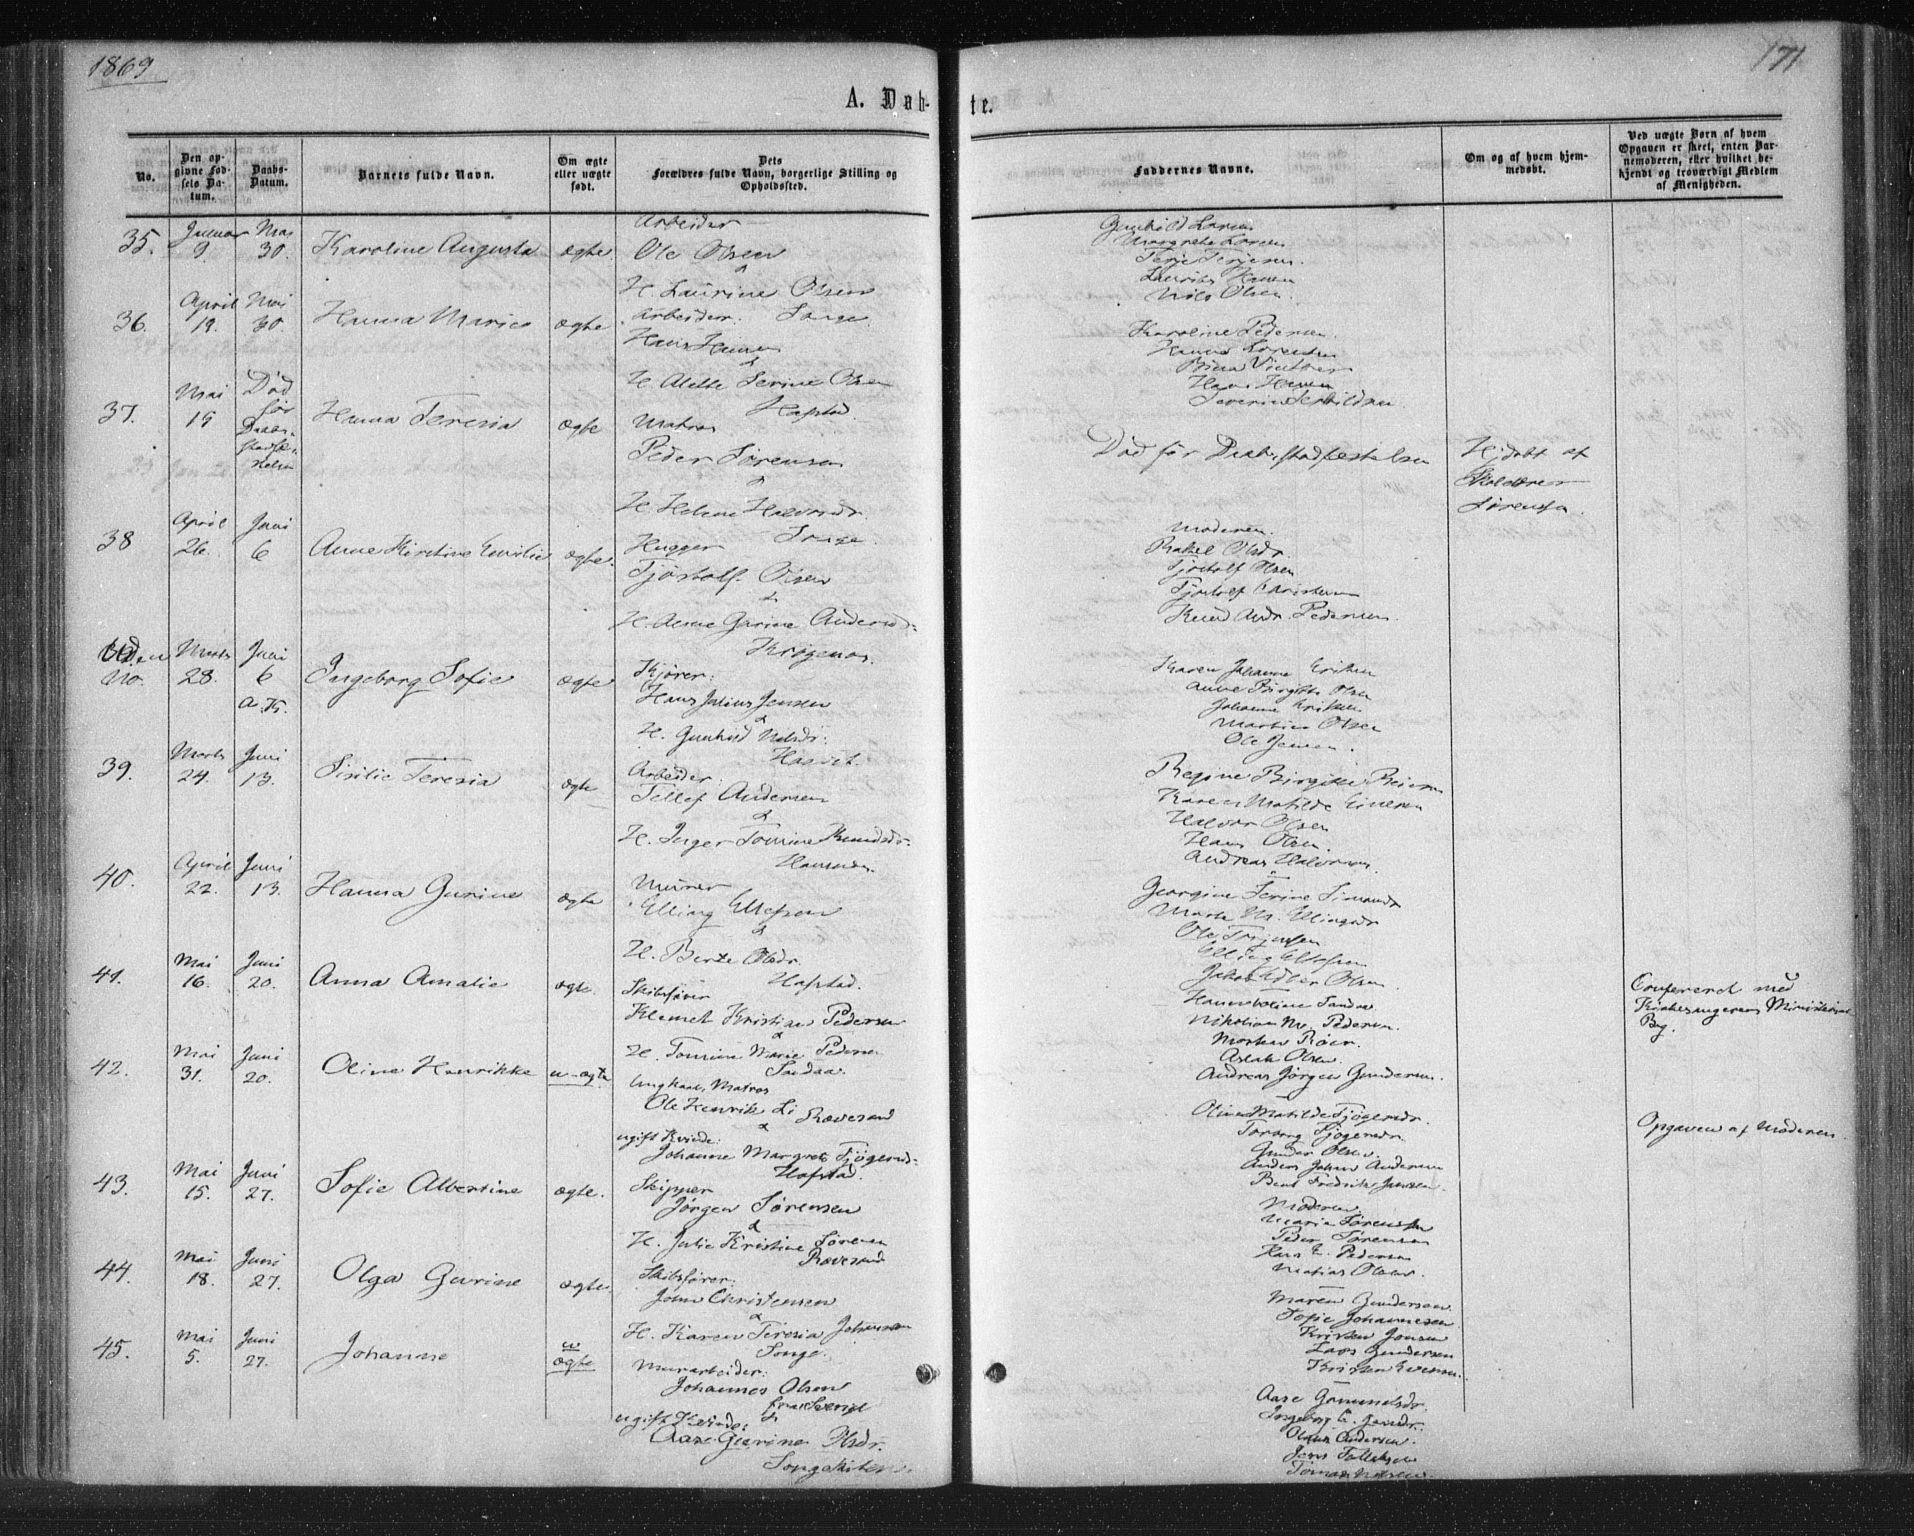 1869
171
A. Døb-
te.
No.
Den op-
givne Fød-
sels Da-
tum.
Daabs-
Datum.
Barnets fulde Navn.
Om ægte
eller uægte
født.
Dets
Forældres fulde Navn, borgerlige Stilling og
Opholdssted.
Faddernes Navne.
Om og af hvem hjem-
medøbt.
Ved uægte Børn af hvem
Opgaven er skeet, enten Bar-
nemoderen, eller hvilket be-
kjendt og troværdigt Medlem
af Menigheden.
35.
Januar
9.
Mai
30.
Karoline Augusta
ægte
Arbeider
Ole Olsen
&
H. Laurine Olsen
Songe
Gunhild Larsen
Margrethe Larsen
Terje Terjesen
Laurits Hansen
Nils Olsen.
36.
April
19.
Mai
30.
Hanna Marie
ægte
Arbeider.
Hans Hansen
&
H. Alette Serine Olsen
Hafstad.
Karoline Pedersen
Hanna Lorentsen
Hans Hansen
37.
Mai
19
Død
før
Daabs-
stadfæs-
telsen
Hanna Teresia
ægte
Matros
Peder Sørensen
&
H. Helene Halvorsdr.
Død før Daabsstadfæstelsen
Hjdøbt af
Skolelærer
38
April
26.
Juni
6
Anne Kirstine Emilie
ægte.
Hugger
Tjøstolf Olsen
&
H. Anne Gurine Andersd:
Krøgenes.
Moderen.
Rakel Olsdr.
Tjøstolf Olsen
Tjøstolf Christensen
Knud Andr. Pedersen.
Uden
No.
Marts
28.
Juni
6
A. K.
Ingeborg Sofie
ægte
Kjører.
Hans Julius Jensen
&
H. Gunhild Nilsdr.
Karen Johanne Eriksen
Anne Birgitte Olsen
Johanne Eriksen
Martin Olsen
Ole Jensen.
39.
Marts
24.
Juni
13.
Sisilie Teresia
ægte
Arbeider.
Tellef Andersen
&
H. Inger Tomine Knudsdr.
Karen Matilde
Halvor Olsen
Hans Olsen.
Andreas Halvorsen.
40.
April
22.
Juni
13.
Hanna Gurine
ægte
Murer
Elling Ellefsen
&
H. Berte Olsdr.
Hafstad.
Georgine Serine
Marte M. Ellingsdr
Ole Terjesen
Elling Ellefsen
Jakob Olsen
41.
Mai
16.
Juni
20.
Anna Amalie
ægte.
Skibsfører
Klemet Kristian Pedersen
&
H. Tomine Marie Pedersen
Sandaa.
Nikoline M. Pedersen.
Morten Røier.
Aslak Olsen.
Andreas Jørgen Gundersen.
Confereret med
Kirkesangerens Ministerial
Bog.
42.
Mai
31.
Juni
20.
Oline Henrikke
u-ægte
Ungkarl, Matros
Ole Henrik Li
Rævesand
&
ugift Kvinde:
Johanne Margrete Tjøgersd:
Hafstad.
Oline Matilde Tjøgersdr.
Torborg Tjøgersdr.
Gunder Olsen.
Anders Johan Andersen
Bent Fredrik Jansen.
Opgaven af Moderen.
43.
Mai
15.
Juni
27.
Sofie Albertine
ægte.
Skipper
Jørgen Sørensen
&
H. Julie Kristine Sørensen
Rævesand
Moderen
Maria Sørensen
Peder Sørensen
Hans E. Pedersen
Matias Olsen.
44.
Mai
18.
Juni
27.
Olga Gurine
ægte
Skibsfører:
John Christensen
&
H. Karen Teresia Johansen
Songe.
Maren Gundersen
Sofie Johannesen
Kristen Jonsen
Lars Gundersen
Kristen Evensen
45.
Mai
5.
Juni
27.
Johanne
u
ægte
Murarbeider:
Johannes Olsen
fra Sverige
&
ugift Kvinde:
Aase Gurine Olsdr.
Aase Gommelsdr.
Olaus Andersen.
Jens Tellefsen
Tomas Nilsen.